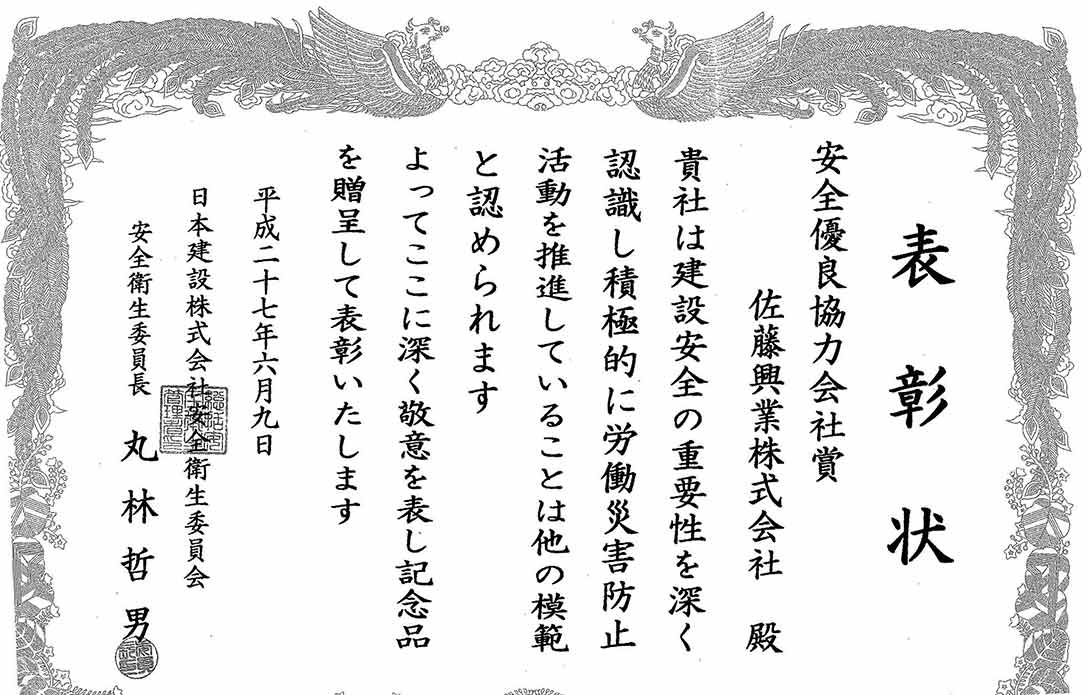 表彰状
安全優良協力会社賞
佐藤興業株式会社 殿
貴社は建設安全の重要性を深く
認識し積極的に労働災害防止
活動を推進していることは他の模範
と認められます
よってここに深く敬意を表し記念品
を贈呈して表彰いたします
平成二十七年六月九日
日本建設株式会社安全衛生委員会
安全衛生委員長 丸林哲男